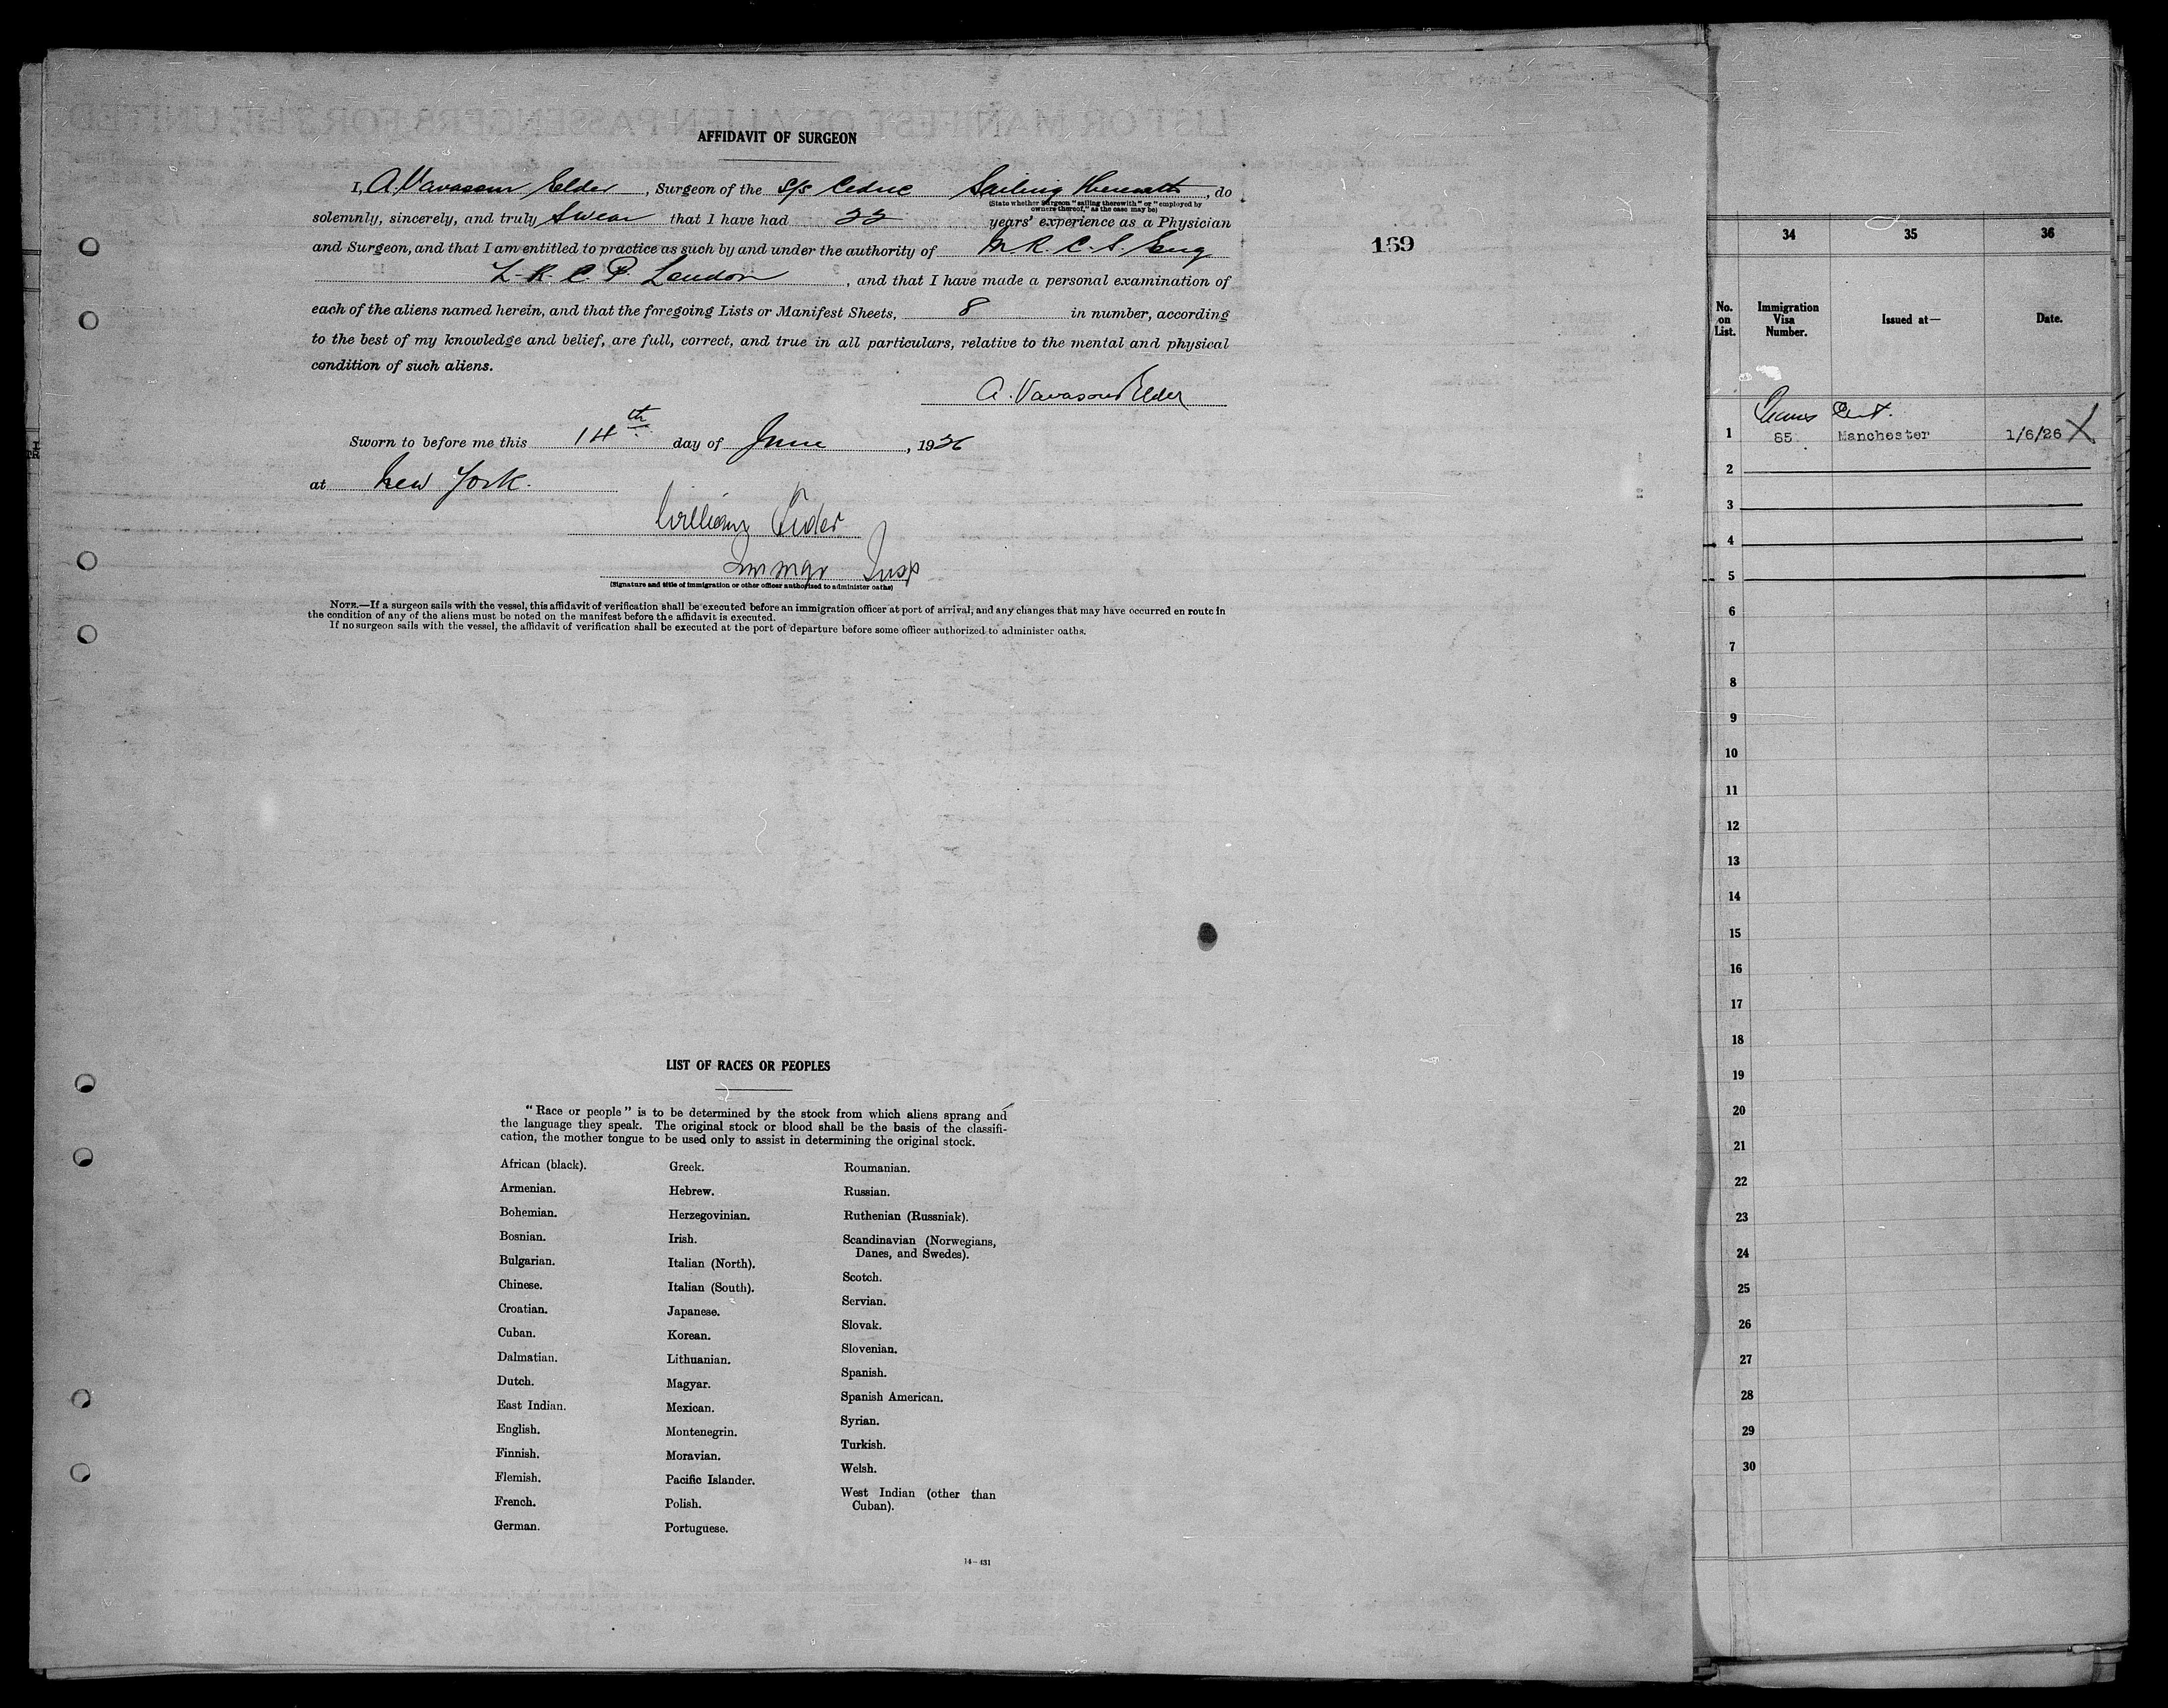 AFFIDAVIT OF SURGEON
I, A. Vavasour Elder, Surgeon of the S/S Cedric Sailing Therewith, do
(State whether Surgeon "sailing therewith" or "employed by
owners thereof," as the case may be)
solemnly, sincerely, and truly Swear that I have had 22 years' experience as a Physician
and Surgeon, and that I am entitled to practice as such by and under the authority of M.R.C.S. Eng
L.R.C.P. London, and that I have made a personal examination of
each of the aliens named herein, and that the foregoing Lists or Manifest Sheets, 8 in number, according
to the best of my knowledge and belief, are full, correct, and true in all particulars, relative to the mental and physical
condition of such aliens.
A. Vavasour Elder
Sworn to before me this 14th day of June, 1926
at New York.
William
Immgr Insp
(Signature and title of immigration or other officer authorized to administer oaths)
NOTE.—If a surgeon sails with the vessel, this affidavit of verification shall be executed before an immigration officer at port of arrival, and any changes that may have occurred en route in
the condition of any of the aliens must be noted on the manifest before the affidavit is executed.
If no surgeon sails with the vessel, the affidavit of verification shall be executed at the port of departure before some officer authorized to administer oaths.
159
LIST OF RACES OR PEOPLES
"Race or people" is to be determined by the stock from which aliens sprang and
the language they speak. The original stock or blood shall be the basis of the classifi-
cation, the mother tongue to be used only to assist in determining the original stock.
African (black).
Armenian.
Bohemian.
Bosnian.
Bulgarian.
Chinese.
Croatian.
Cuban.
Dalmatian.
Dutch.
East Indian.
English.
Finnish.
Flemish.
French.
German.
Greek.
Hebrew.
Herzegovinian.
Irish.
Italian (North).
Italian (South).
Japanese.
Korean.
Lithuanian.
Magyar.
Mexican.
Montenegrin.
Moravian.
Pacific Islander.
Polish.
Portuguese.
Roumanian.
Russian.
Ruthenian (Russniak).
Scandinavian (Norwegians,
Danes, and Swedes).
Scotch.
Servian.
Slovak.
Slovenian.
Spanish.
Spanish American.
Syrian.
Turkish.
Welsh.
West Indian (other than
Cuban).
14—431
34 35 36
No. on List. Immigration Visa Number. Issued at— Date.
1 85 Manchester 1/6/26 X
2
3
4
5
6
7
8
9
10
11
12
13
14
15
16
17
18
19
20
21
22
23
24
25
26
27
28
29
30